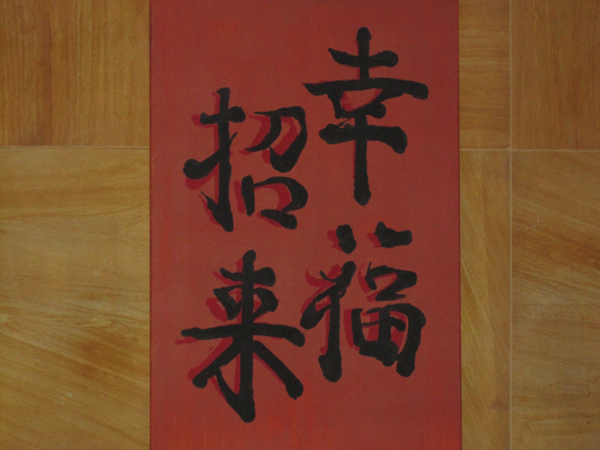 幸福
招来